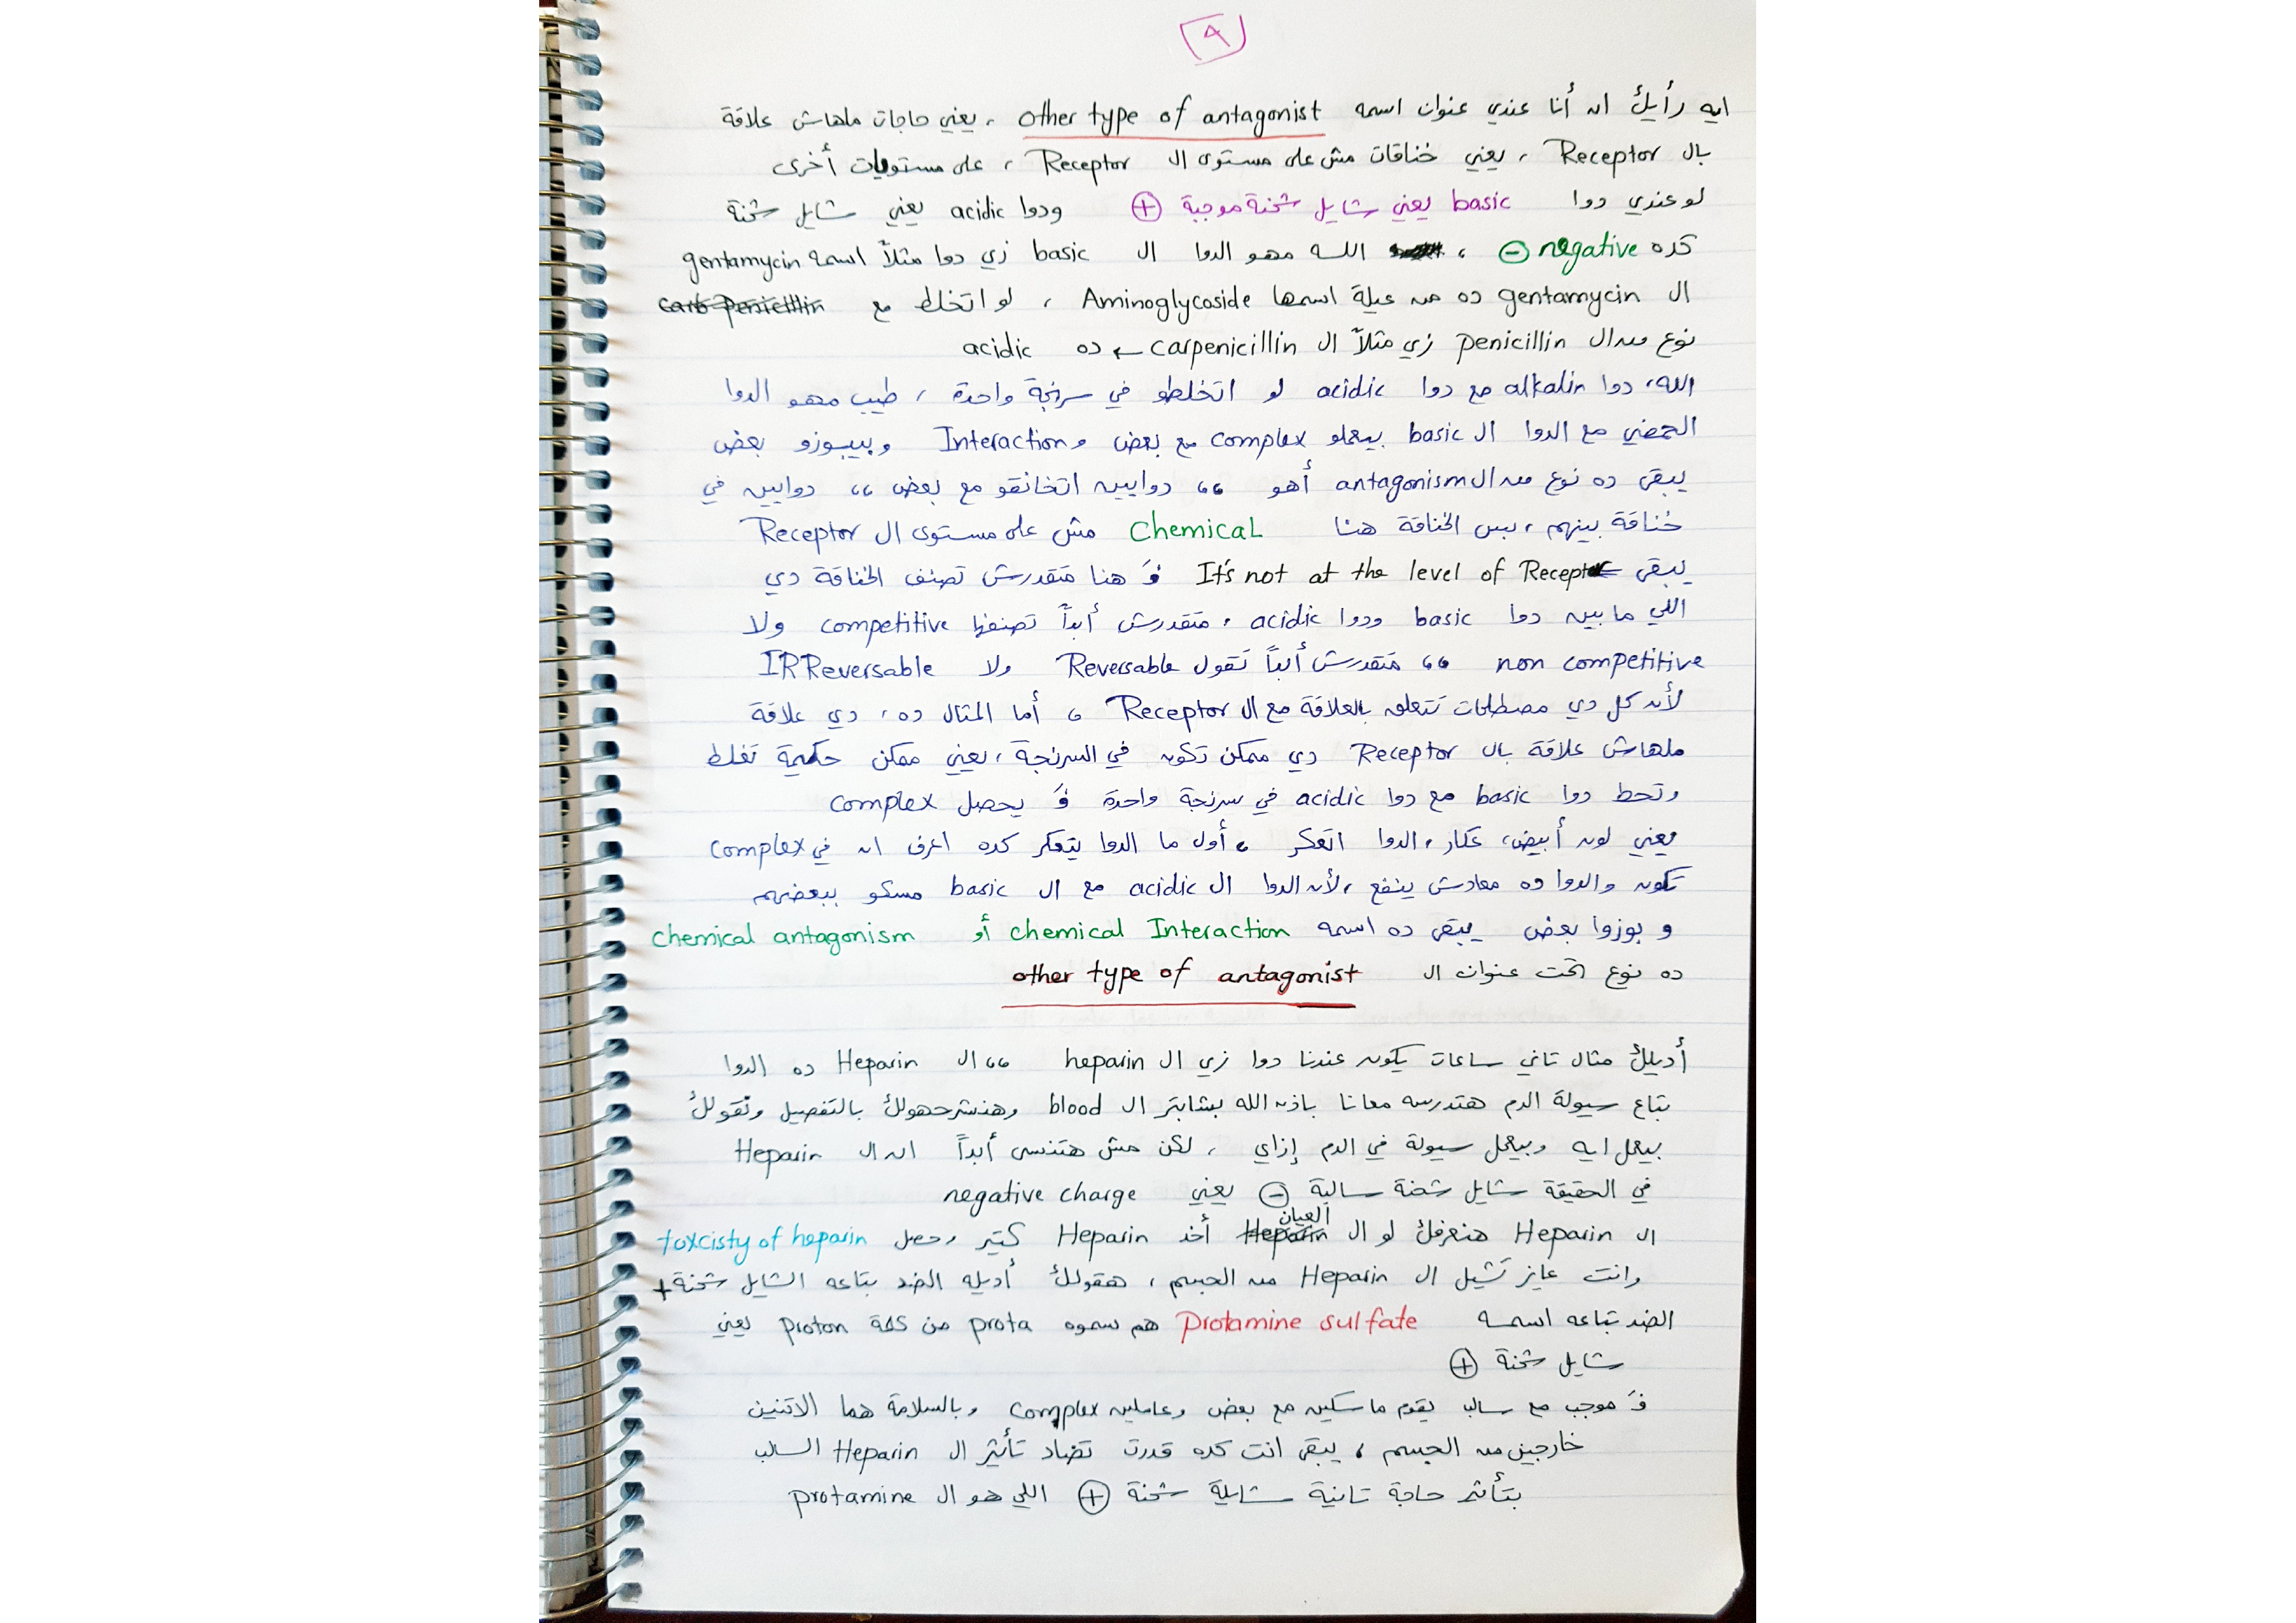 ٩
ايه رأيك ان أنا عندي عنوان اسمه other type of antagonist ، يعني حاجات ملهاش علاقة
بال Receptor ، يعني خناقات مش على مستوى ال Receptor ، على مستويات أخرى
لو عندي دوا basic يعني شايل شحنة موجبة ⊕ ودوا acidic يعني شايل شحنة
كده negative ⊖ ، الله مهو الدوا ال basic زي دوا مثلاً اسمه gentamycin
ال gentamycin ده من عيلة اسمها Aminoglycoside ، لو اتخلط مع carb penicillin
نوع من ال penicillin زي مثلاً ال carpenicillin ← ده acidic
الله، دوا alkalin مع دوا acidic لو اتخلطو في سرنجة واحدة ، طيب مهو الدوا
الحمضي مع الدوا ال basic بيعملو complex مع بعض و Interaction وبيبوزو بعض
يبقى ده نوع من ال antagonism أهو ،، دوايين اتخانقو مع بعض ،، دوايين في
خناقة بينهم ، بس الخناقة هنا Chemical مش على مستوى ال Receptor
يبقى It's not at the level of Receptor فَ هنا متقدرش تصنف الخناقة دي
اللي ما بين دوا basic ودوا acidic ، متقدرش أبداً تصنفها competitive ولا
non competitive ،، متقدرش أبداً تقول Reversable ولا IRReversable
لأن كل دي مصطلحات تتعلق بالعلاقة مع ال Receptor ، أما المثال ده ، دي علاقة
ملهاش علاقة بال Receptor دي ممكن تكون في السرنجة ، يعني ممكن حكيمة تغلط
وتحط دوا basic مع دوا acidic في سرنجة واحدة فَ يحصل complex
يعني لون أبيض، عكار ، الدوا اتعكر ، أول ما الدوا يتعكر كده اعرف ان في complex
تكون والدوا ده معادش ينفع ، لأن الدوا ال acidic مع ال basic مسكو ببعضهم
و بوزوا بعض يبقى ده اسمه chemical Interaction أو chemical antagonism
ده نوع تحت عنوان ال other type of antagonist
أديلك مثال تاني ساعات يكون عندنا دوا زي ال heparin ،، ال Heparin ده الدوا
بتاع سيولة الدم هتدرسه معانا باذن الله بشابتر ال blood وهنشرحهولك بالتفصيل ونقولك
بيعمل ايه وبيعمل سيولة في الدم إزاي ، لكن مش هتنسى أبداً ان ال Heparin
في الحقيقة شايل شحنة سالبة ⊖ يعني negative charge
ال Heparin هنعرفك لو ال Heparin العيان أخد Heparin كتير وحصل toxcisty of heparin
وانت عايز تشيل ال Heparin من الجسم ، هقولك أديله الضد بتاعه الشايل شحنة +
الضد بتاعه اسمه Protamine sulfate هم سموه prota من كلمة proton يعني
شايل شحنة ⊕
فَ موجب مع سالب يقوم ماسكين مع بعض وعاملين complex وبالسلامة هما الاتنين
خارجين من الجسم ، يبقى انت كده قدرت تضاد تأثير ال Heparin السالب
بتأثير حاجة تانية شايلة شحنة ⊕ اللي هو ال protamine